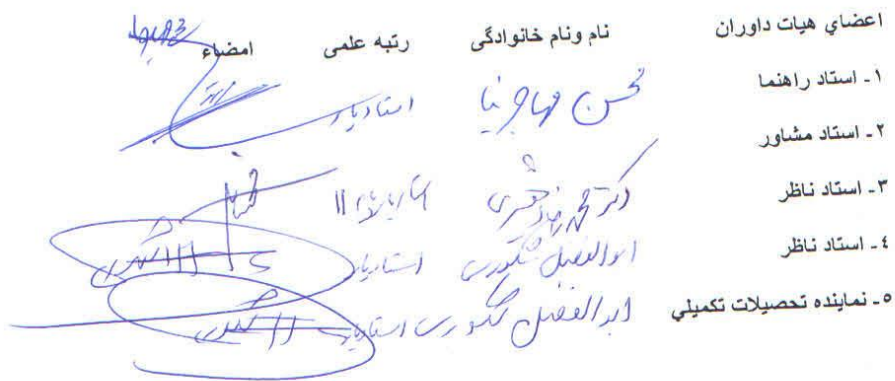 اعضاي هيات داوران نام ونام خانوادگی رتبه علمی امضاء
١- استاد راهنما محسن مهاجرنیا استادیار
٢- استاد مشاور
٣- استاد ناظر دکتر محمد استادیار
٤- استاد ناظر ابوالفضل شکوری استادیار
٥- نماينده تحصيلات تكميلي ابوالفضل شکوری استادیار